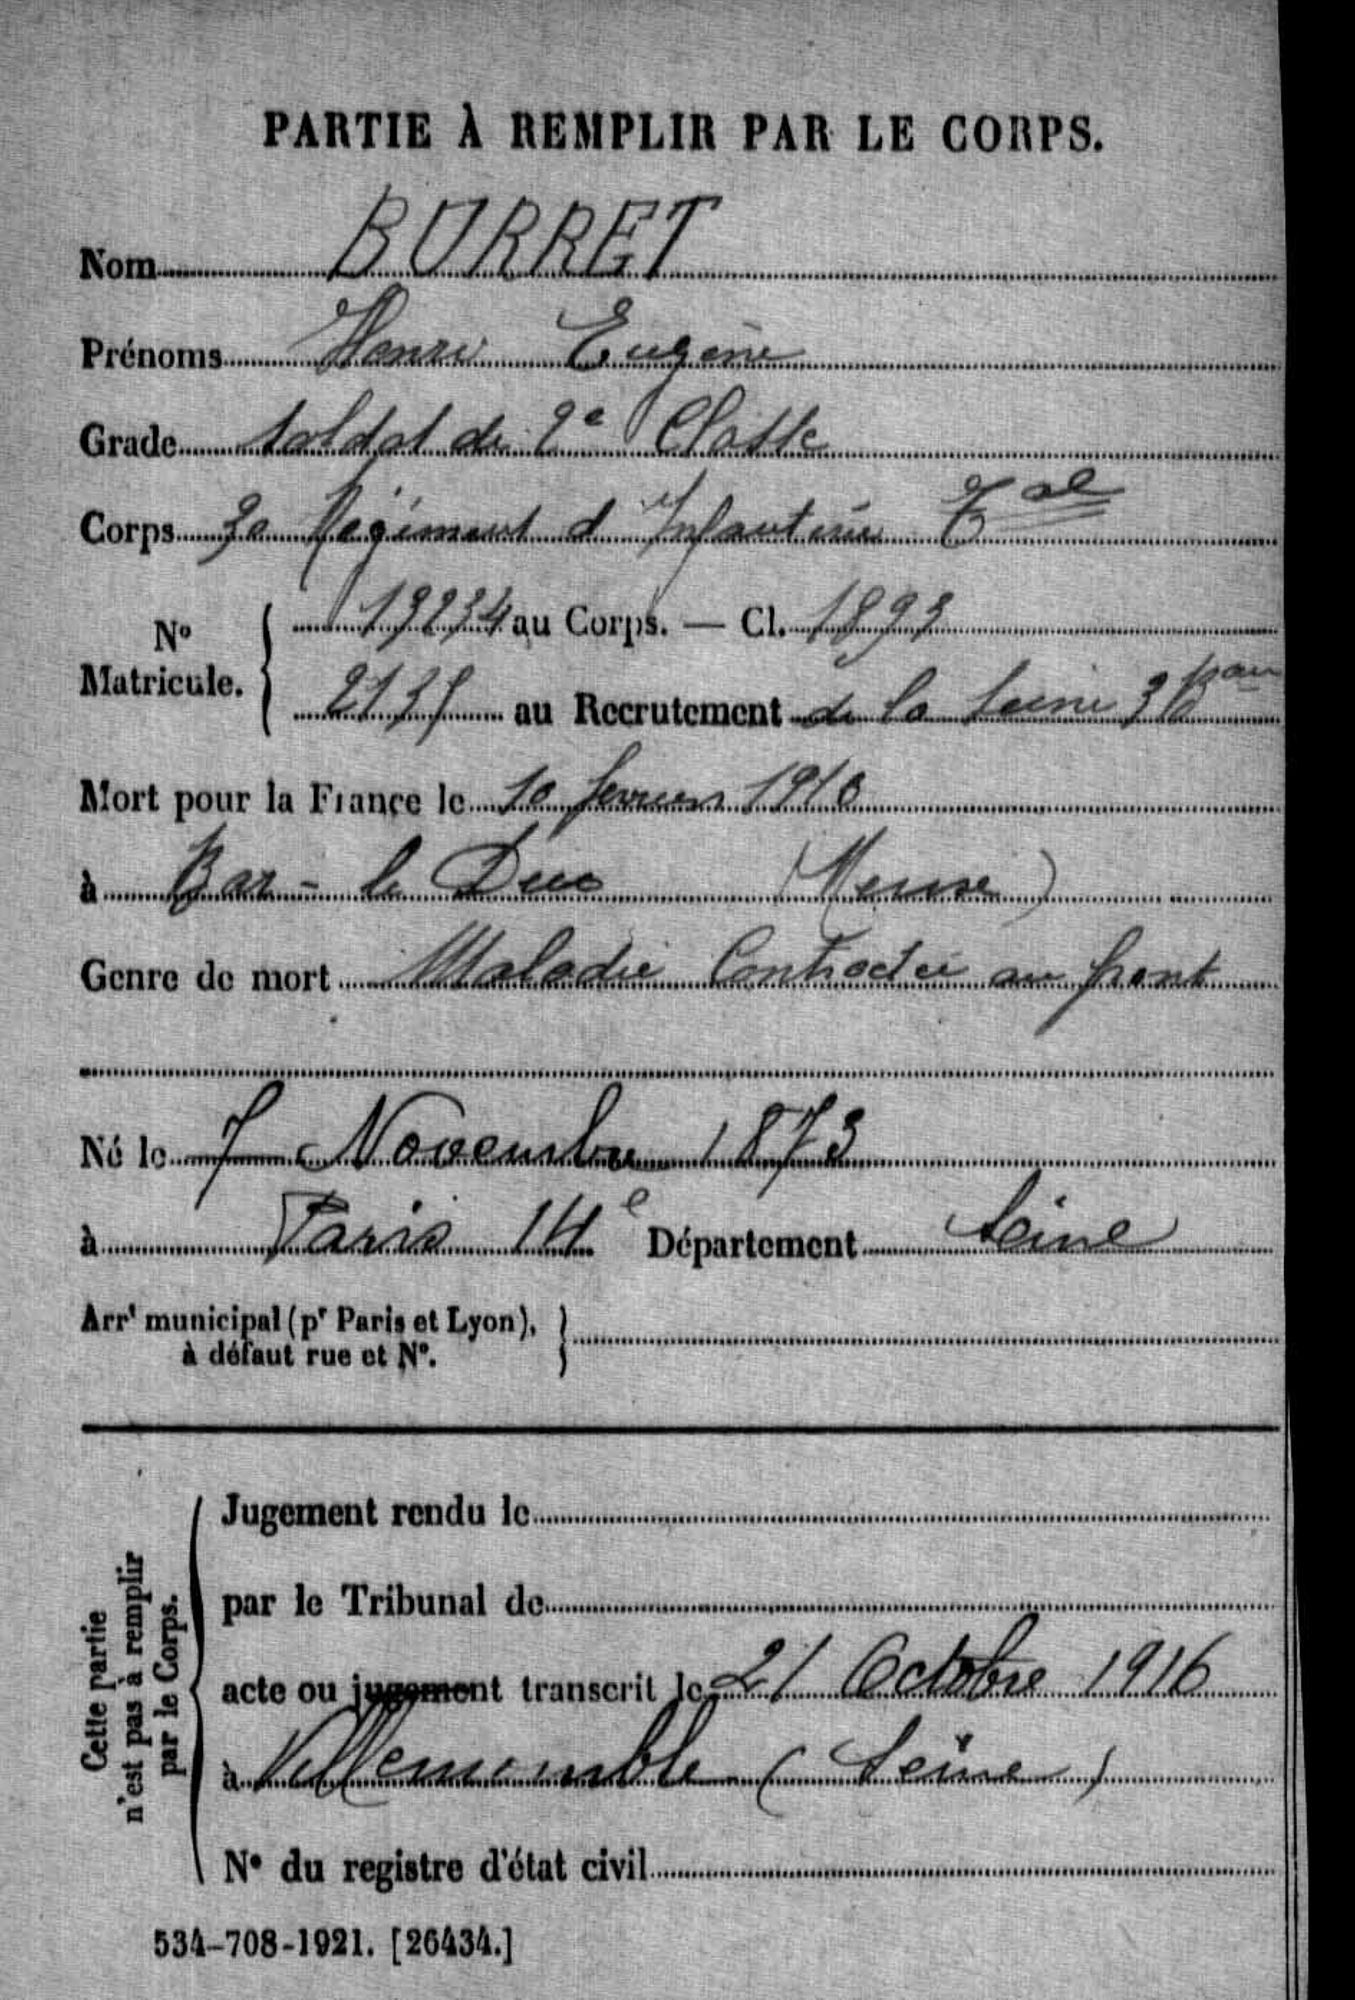 PARTIE À REMPLIR PAR LE CORPS.
Nom BURRET
Prénoms Henri Eugène
Grade Soldat de 2e Classe
Corps Régiment d'Infanterie Tal
No Matricule. { au Corps. — Cl. 1893
au Recrutement de la Seine 3 Bau
Mort pour la France le 10 février 1916
à Bar-le Duc (Meuse)
Genre de mort Maladie Contractée au front
Né le 7 Novembre 1873
à Paris 14e Département Seine
Arrt municipal (pr Paris et Lyon), à défaut rue et No. }
Cette partie n'est pas à remplir par le Corps. {
Jugement rendu le
par le Tribunal de
acte ou jugement transcrit le 21 Octobre 1916
à Villemomble (Seine)
No du registre d'état civil
534-708-1921. [26434.]